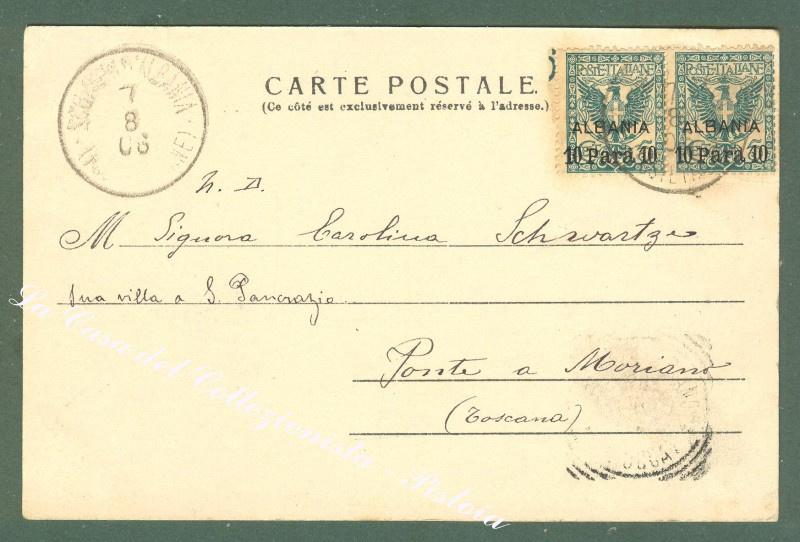 CARTE POSTALE.
(Ce côté est exclusivement réservé à l'adresse.)
POSTE ITALIANE POSTE ITALIANE
ALBANIA ALBANIA
10 Para 10 10 Para 10
D'ALBANIA
7
8
06
N. D.
M Signora Carolina Schwartze
Sua villa a S. Pancrazio
Ponte a Moriano
(Toscana)
La Casa del Collezionista - Pistoia